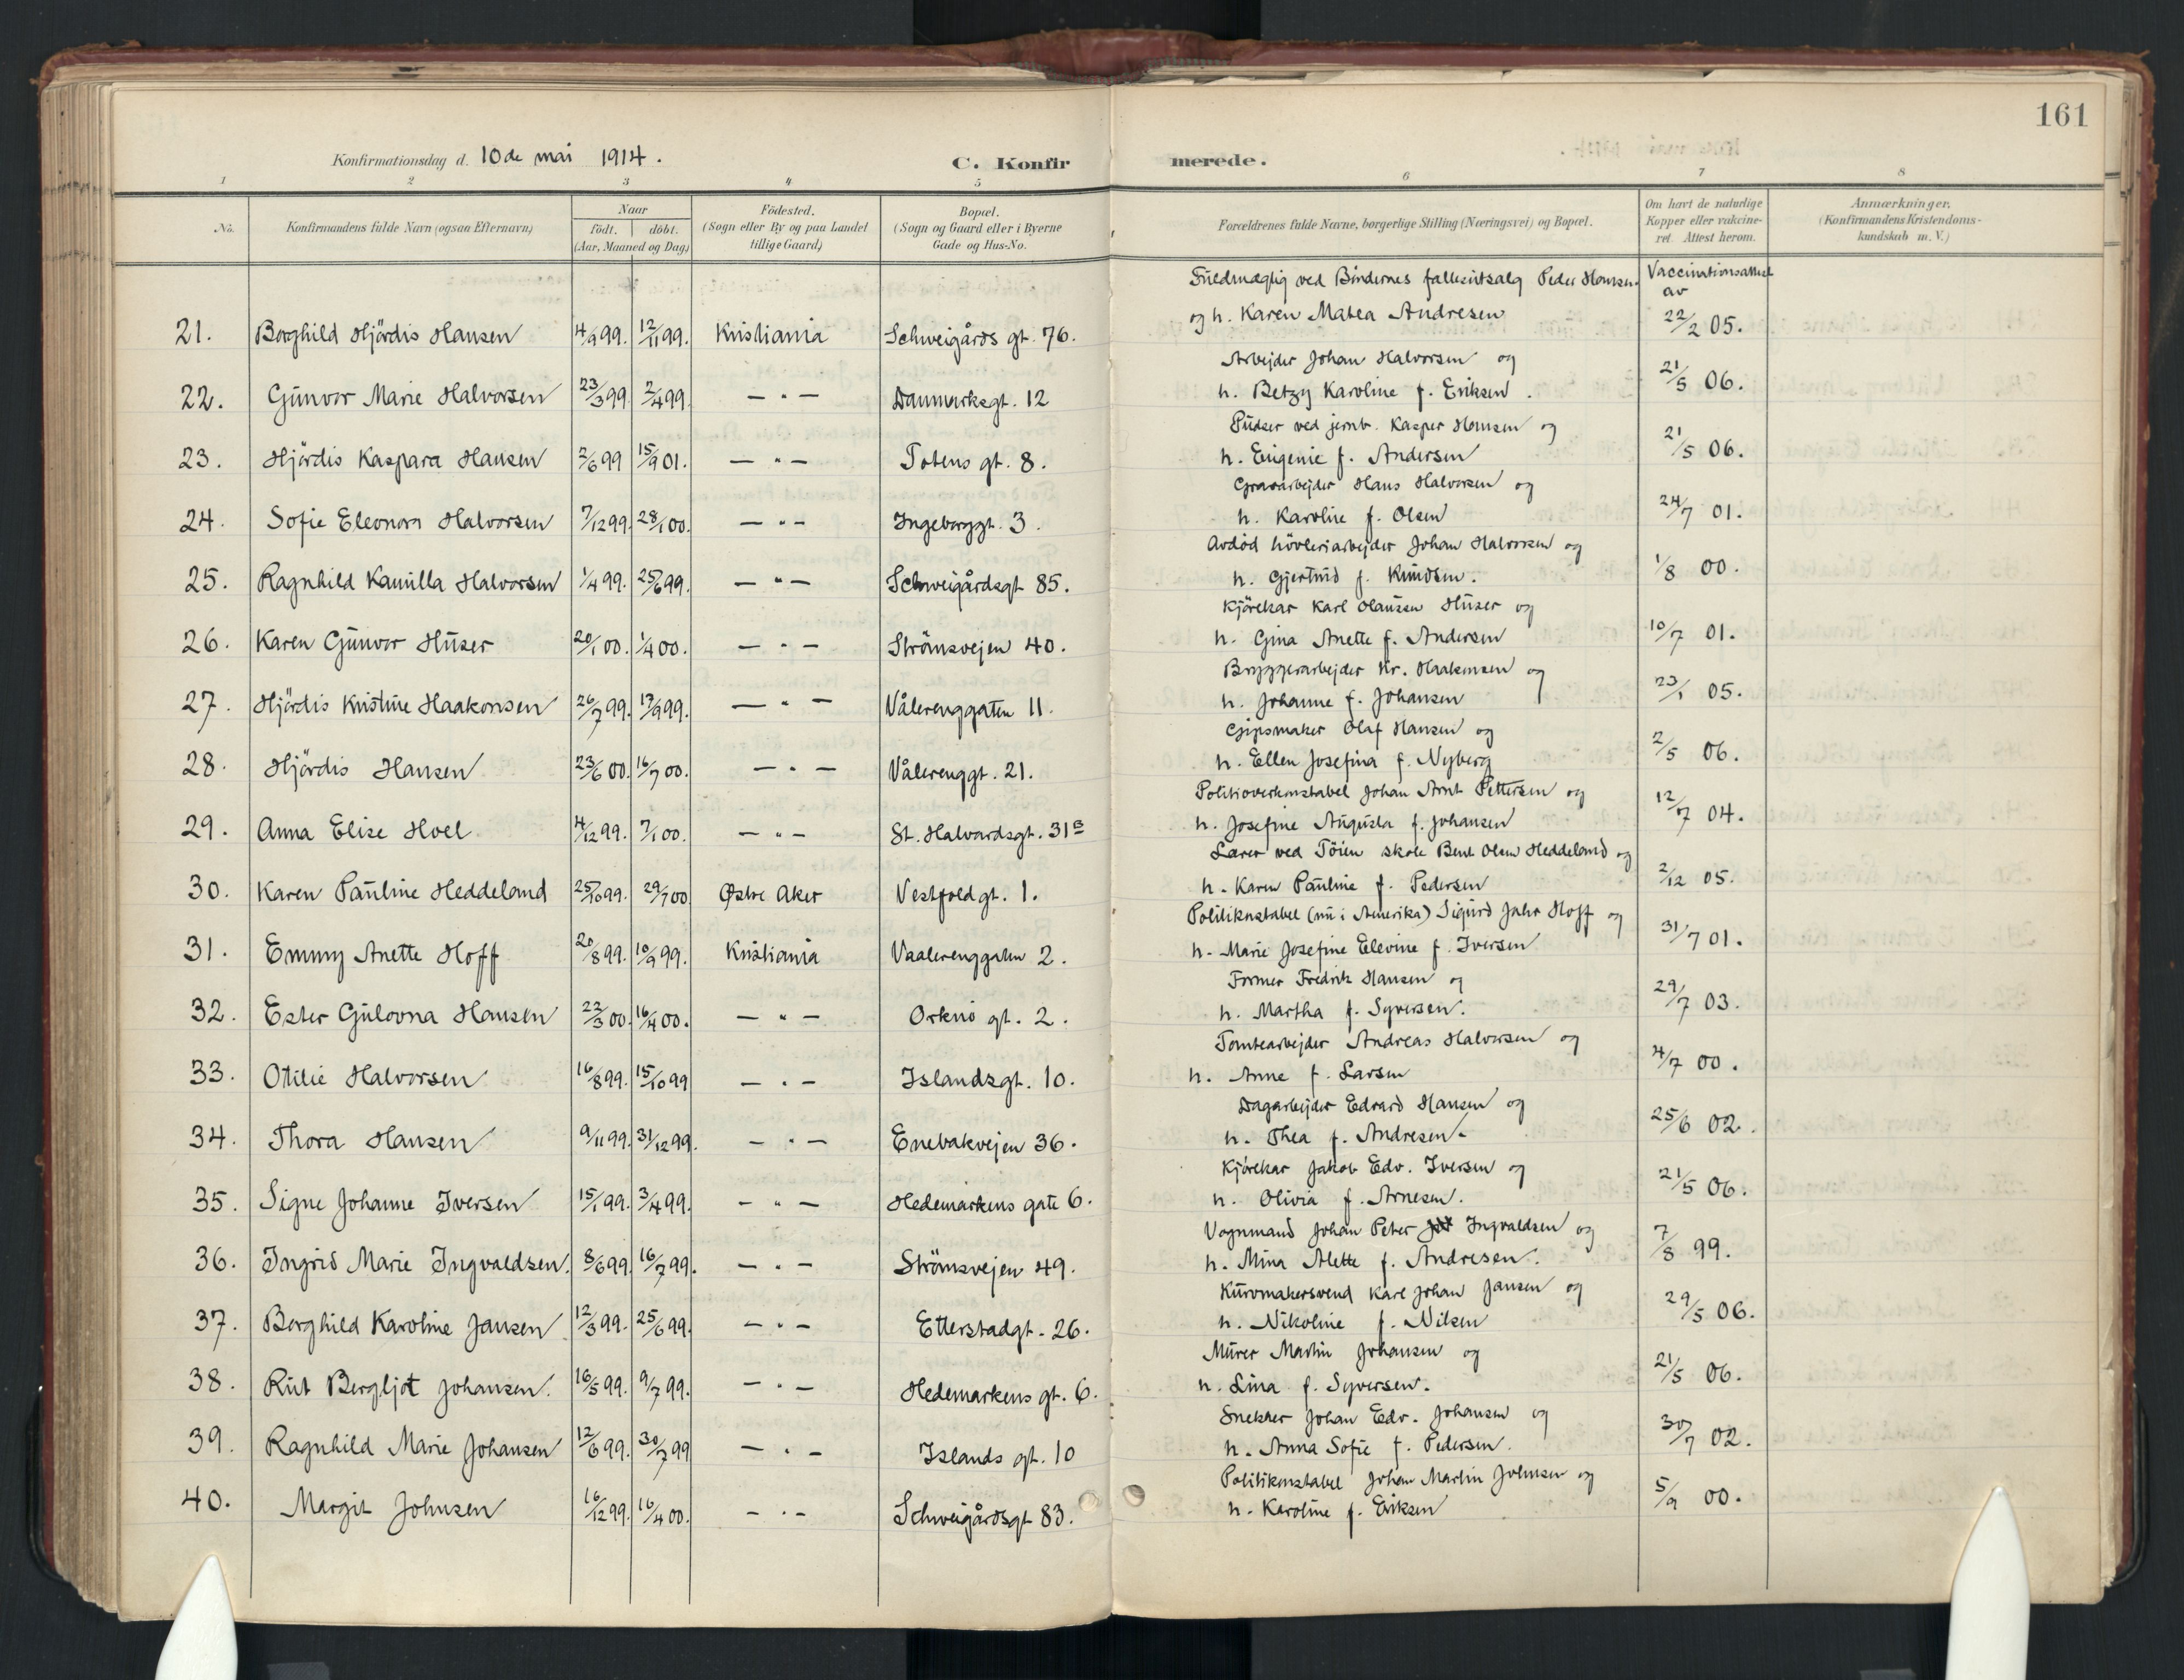 161
Konfirmationsdag d. 10de mai 1914.
C. Konfirmerede.
1 2 3 4 5 6 7 8
No.
Konfirmandens fulde Navn (ogsaa Efternavn)
Naar
födt. döbt.
(Aar, Maaned og Dag)
Födested.
(Sogn eller By og paa Landet
tillige Gaard)
Bopæl.
(Sogn og Gaard eller i Byerne
Gade og Hus-No.
Forældrenes fulde Navne, borgerlige Stilling (Næringsvei) og Bopæl.
Om havt de naturlige
Kopper eller vakcine-
ret. Attest herom.
Anmærkninger.
(Konfirmandens Kristendoms-
kundskab m. V.)
Fuldmægtig ved Böndernes fællesutsalg Peder Hansen Vaccinationsattest av
21. Borghild Hjördis Hansen 4/9 99. 12/11 99. Kristiania Schweigårds gt. 76. og h. Karen Matea Andresen 22/2 05.
Arbejder Johan Halvorsen og
22. Gunvor Marie Halvorsen 23/3 99 2/4 99. — " — Danmarksgt. 12 h. Betzy Karoline f. Eriksen. 21/5 06.
Pudser ved jernb. Kasper Hansen og
23. Hjördis Kaspara Hansen 2/6 99 15/9 01. — " — Totens gt. 8. h. Eugenie f. Andersen 21/5 06.
Gravarbejder Hans Halvorsen og
24. Sofie Eleonora Halvorsen 7/12 99. 28/1 00. — " — Ingeborggt. 3. h. Karoline f. Olsen 24/7 01.
Avdöd hövleriarbejder Johan Halvorsen og
25. Ragnhild Kamilla Halvorsen 1/4 99. 25/6 99. — " — Schweigårdsgt 85. h. Gjertrud f. Knudsen. 1/8 00.
Kjörekar Karl Olausen Huser og
26. Karen Gunvor Huser 20/1 00. 1/4 00. — " — Strömsvejen 40. h. Gina Anette f. Andersen 10/7 01.
Bryggerarbejder Kr. Haakonsen og
27. Hjördis Kristine Haakonsen 26/7 99. 17/9 99. — " — Vålerenggaten 11. h. Johanne f. Johansen 23/1 05.
Gipsmaker Olaf Hansen og
28. Hjördis Hansen 23/6 00. 16/7 00. — " — Vålerenggt. 21. h. Ellen Josefina f. Nyberg 2/5 06.
Politioverkonstabel Johan Arnt Pettersen og
29. Anna Elise Hoel 4/12 99. 7/1 00. — " — St. Halvardsgt. 31B h. Josefine Augusta f. Johansen 12/7 04.
Lærer ved Töien skole Bent Olsen Heddeland og
30. Karen Pauline Heddeland 25/10 99. 29/7 00 Østre Aker Vestfoldgt. 1. h. Karen Pauline f. Pedersen 2/12 05.
Politikonstabel (nu i Amerika) Sigurd Jahr Hoff og
31. Emmy Anette Hoff 20/8 99. 10/9 99. Kristiania Vaalerenggaten 2. h. Marie Josefine Elevine f. Iversen 31/7 01.
Former Fredrik Hansen og
32. Ester Gulovna Hansen 22/3 00. 16/4 00. — " — Orknö gt. 2. h. Martha f. Syversen. 29/7 03.
Tomtearbejder Andreas Halvorsen og
33. Otilie Halvorsen 16/8 99. 15/10 99 — " — Islandsgt. 10. h. Anne f. Larsen 4/7 00.
Dagarbejder Edvard Hansen og
34. Thora Hansen 9/11 99. 31/12 99. — " — Enebakvejen 36. h. Thea f. Andresen. 25/6 02.
Kjörekar Jakob Edv. Iversen og
35. Signe Johanne Iversen 15/1 99. 3/4 99. — " — Hedemarkens gate 6. h. Olivia f. Arnesen. 21/5 06.
Vognmand Johan Peter Ingvaldsen og
36. Ingrid Marie Ingvaldsen. 8/6 99. 16/7 99. — " — Strömsvejen 49. h. Mina Alette f. Andresen. 7/8 99.
Kurvmakersvend Karl Johan Jansen og
37. Borghild Karoline Jansen 12/3 99. 25/6 99. — " — Etterstadgt. 26. h. Nikoline f. Nilsen 29/5 06.
Murer Martin Johansen og
38. Rut Bergljot Johansen. 16/5 99. 9/7 99. — " — Hedemarkens gt. 6. h. Lina f. Syversen. 21/5 06.
Snekker Johan Edv. Johansen og
39. Ragnhild Marie Johansen 12/6 99. 30/7 99 — " — Islands gt. 10 h. Anna Sofie f. Pedersen. 30/7 02.
Politikonstabel Johan Martin Johnsen og
40. Margit Johnsen 16/12 99. 16/4 00. — " — Schweigårdsgt 83. h. Karoline f. Eriksen 5/9 00.